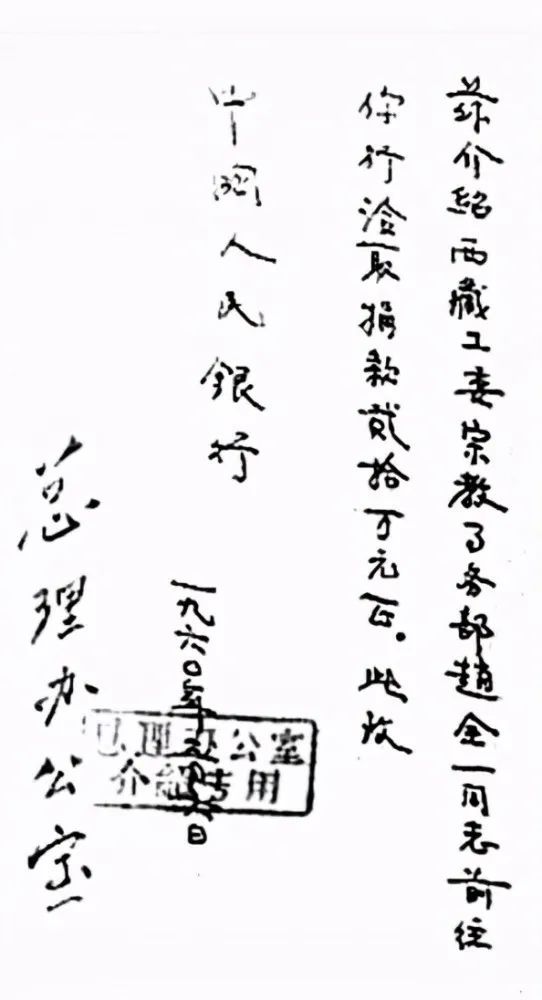 兹介紹西藏工委宗教事务部趙全一同志前往
你行洽取捐款贰拾万元正。此致
中國人民銀行
一九六〇年 日
总理办公室
总理办公室
介紹专用